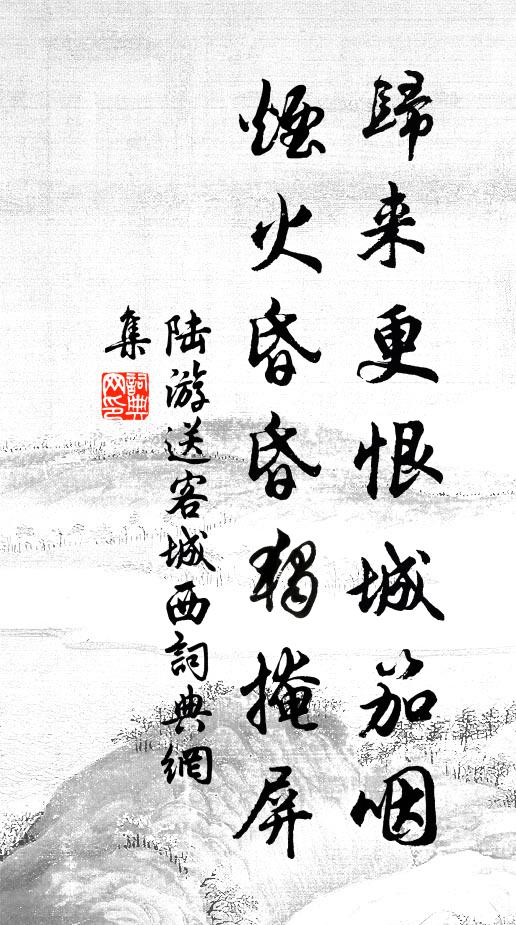 歸来更恨城笳咽
煙火昏昏獨掩屏
陆游送客城西詞典網
集
詞典
网印